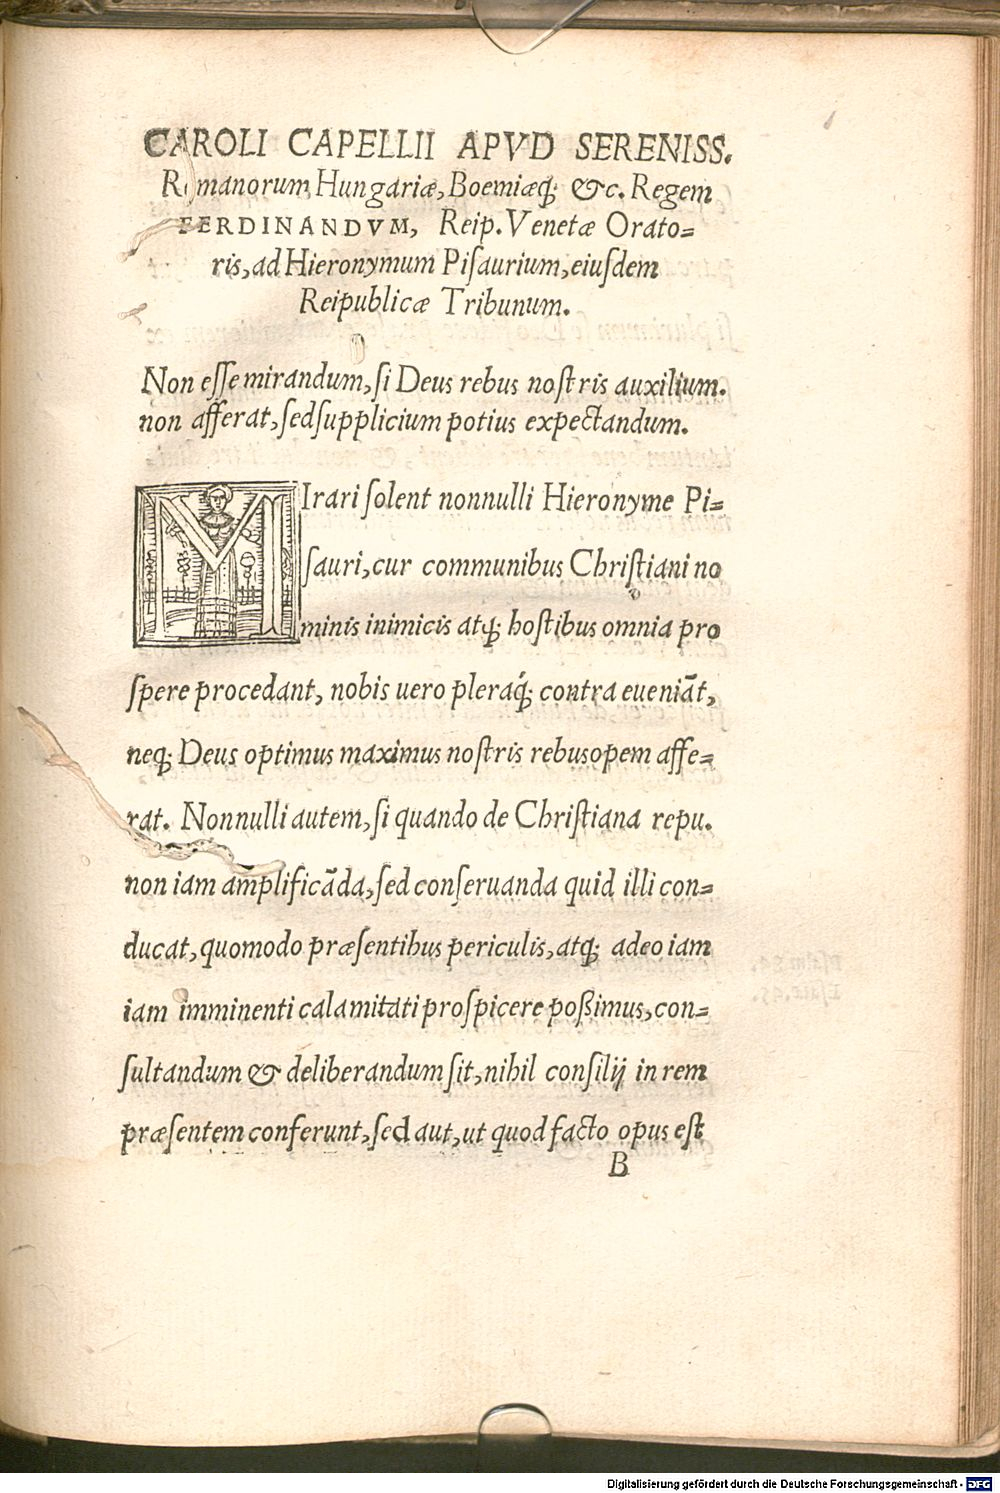 CAROLI CAPELLII APVD SERENISS.
Romanorum, Hungariæ, Boemiæq; &c. Regem
FERDINANDVM, Reip. Venetæ Orato=
ris, ad Hieronymum Piſaurium, eiuſdem
Reipublicæ Tribunum.
Non eſſe mirandum, ſi Deus rebus noſtris auxilium.
non afferat, ſed ſupplicium potius expectandum.
MIrari ſolent nonnulli Hieronyme Pi=
ſauri, cur communibus Chriſtiani no
minis inimicis atq; hoſtibus omnia pro
ſpere procedant, nobis uero pleraq́; contra eueniāt,
neq; Deus optimus maximus noſtris rebus opem affe=
rat. Nonnulli autem, ſi quando de Chriſtiana repu.
non iam amplificāda, ſed conſeruanda quid illi con=
ducat, quomodo præſentibus periculis, atq; adeo iam
iam imminenti calamitati proſpicere poßimus, con=
ſultandum & deliberandum ſit, nihil conſilij in rem
præſentem conferunt, ſed aut, ut quod facto opus eſt
B
Digitalisierung gefördert durch die Deutsche Forschungsgemeinschaft - DFG